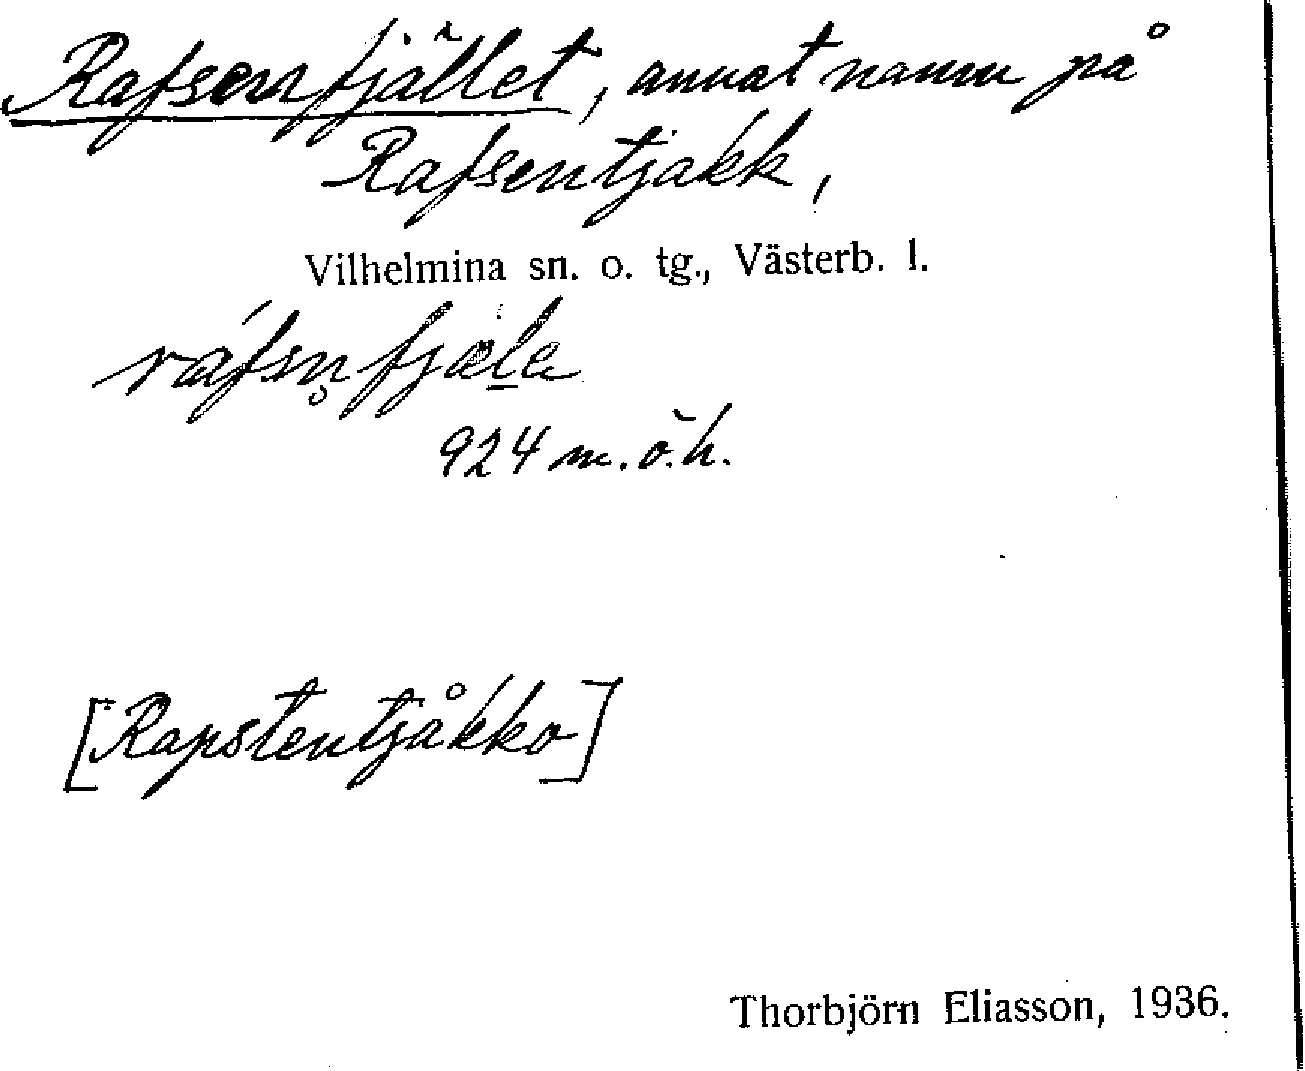 Rafsenfjället, annat namn på
Rafsentjakk,
Vilhelmina sn. o. tg., Västerb. l.
ráfsn̥fjælɐ
924 m.ö.h.
[Rapstentjåkko]
Thorbjörn Eliasson, 1936.